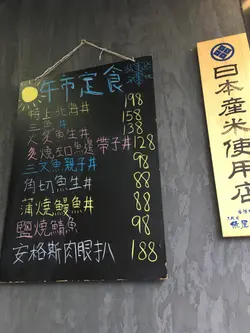 午市定食
特上北海丼 198
三色丼 158
大芝魚生丼 138
炙燒左口魚邊帶子丼 128
三文魚親子丼 98
角切魚生丼 88
蒲燒鰻魚丼 88
鹽燒鯖魚 98
安格斯肉眼扒 188
日本産米使用店